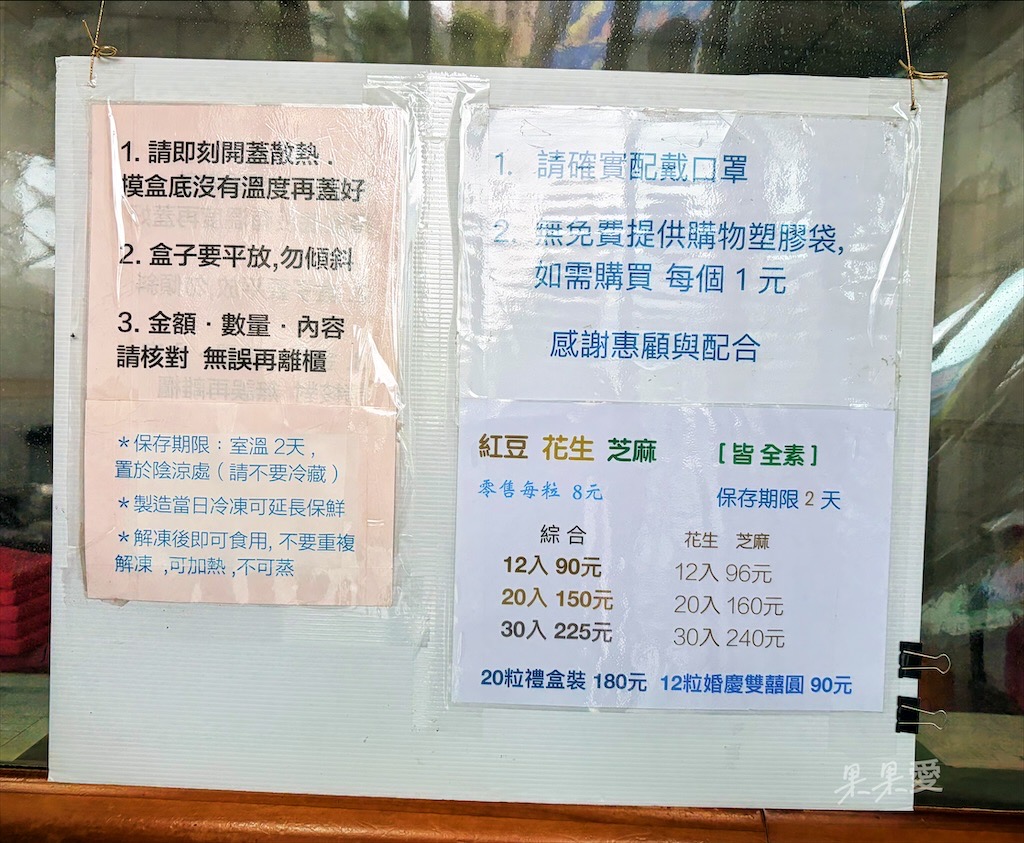 1. 請即刻開蓋散熱.
摸盒底沒有溫度再蓋好
2. 盒子要平放,勿傾斜
3. 金額·數量·內容
請核對 無誤再離櫃
*保存期限：室溫 2天,
置於陰涼處（請不要冷藏）
*製造當日冷凍可延長保鮮
*解凍後即可食用, 不要重複
解凍 ,可加熱 ,不可蒸
1. 請確實配戴口罩
2. 無免費提供購物塑膠袋,
如需購買 每個 1 元
感謝惠顧與配合
紅豆 花生 芝麻 [皆 全素]
零售每粒 8元 保存期限 2 天
綜合 花生 芝麻
12入 90元 12入 96元
20入 150元 20入 160元
30入 225元 30入 240元
20粒禮盒裝 180元 12粒婚慶雙囍圓 90元
果果愛